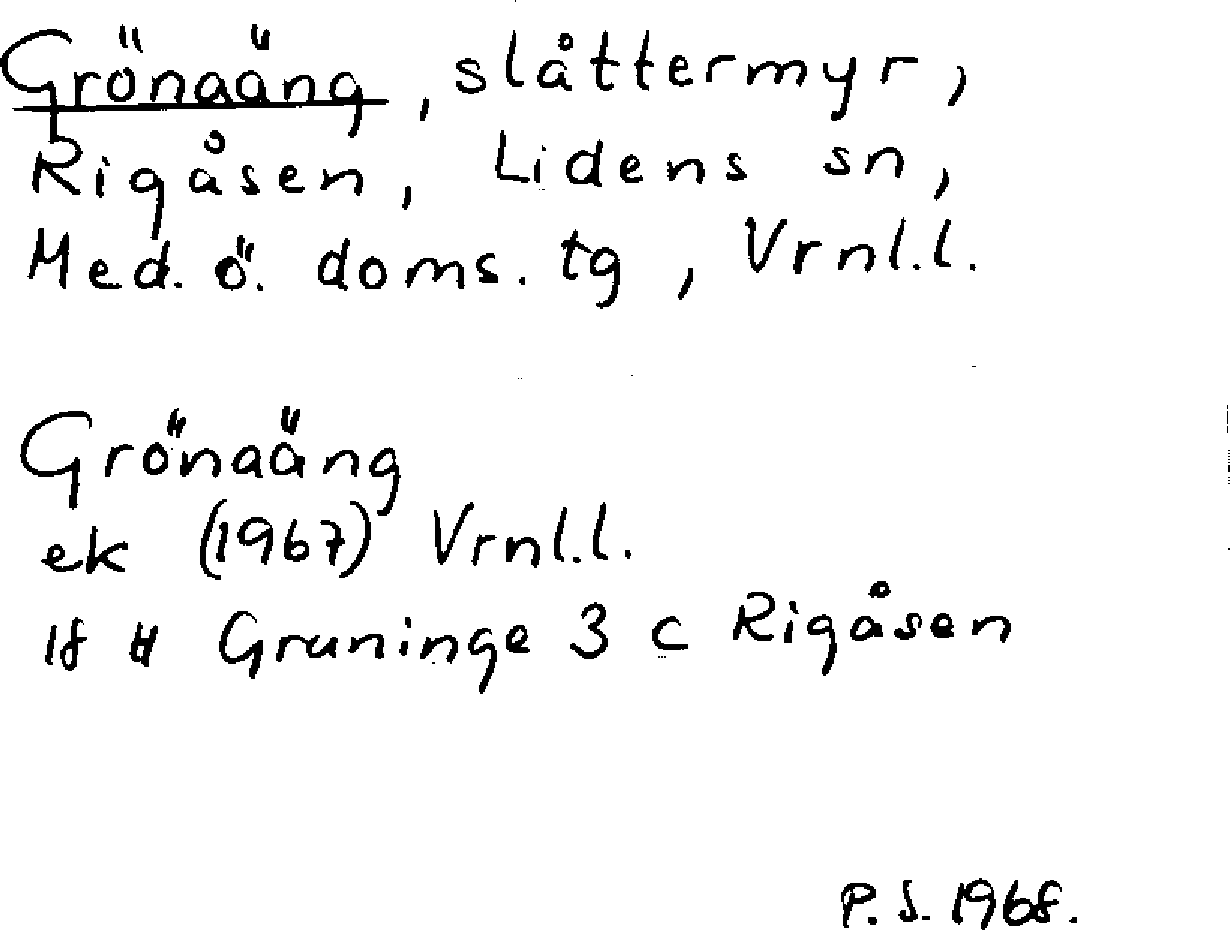 Grönaäng, slåttermyr,
Rigåsen, Lidens sn,
Med. ö. doms. tg, Vrnl.l.
Grönaäng
ek (1967) Vrnl.l.
Graninge 3 c Rigåsen
P.S. 1968.